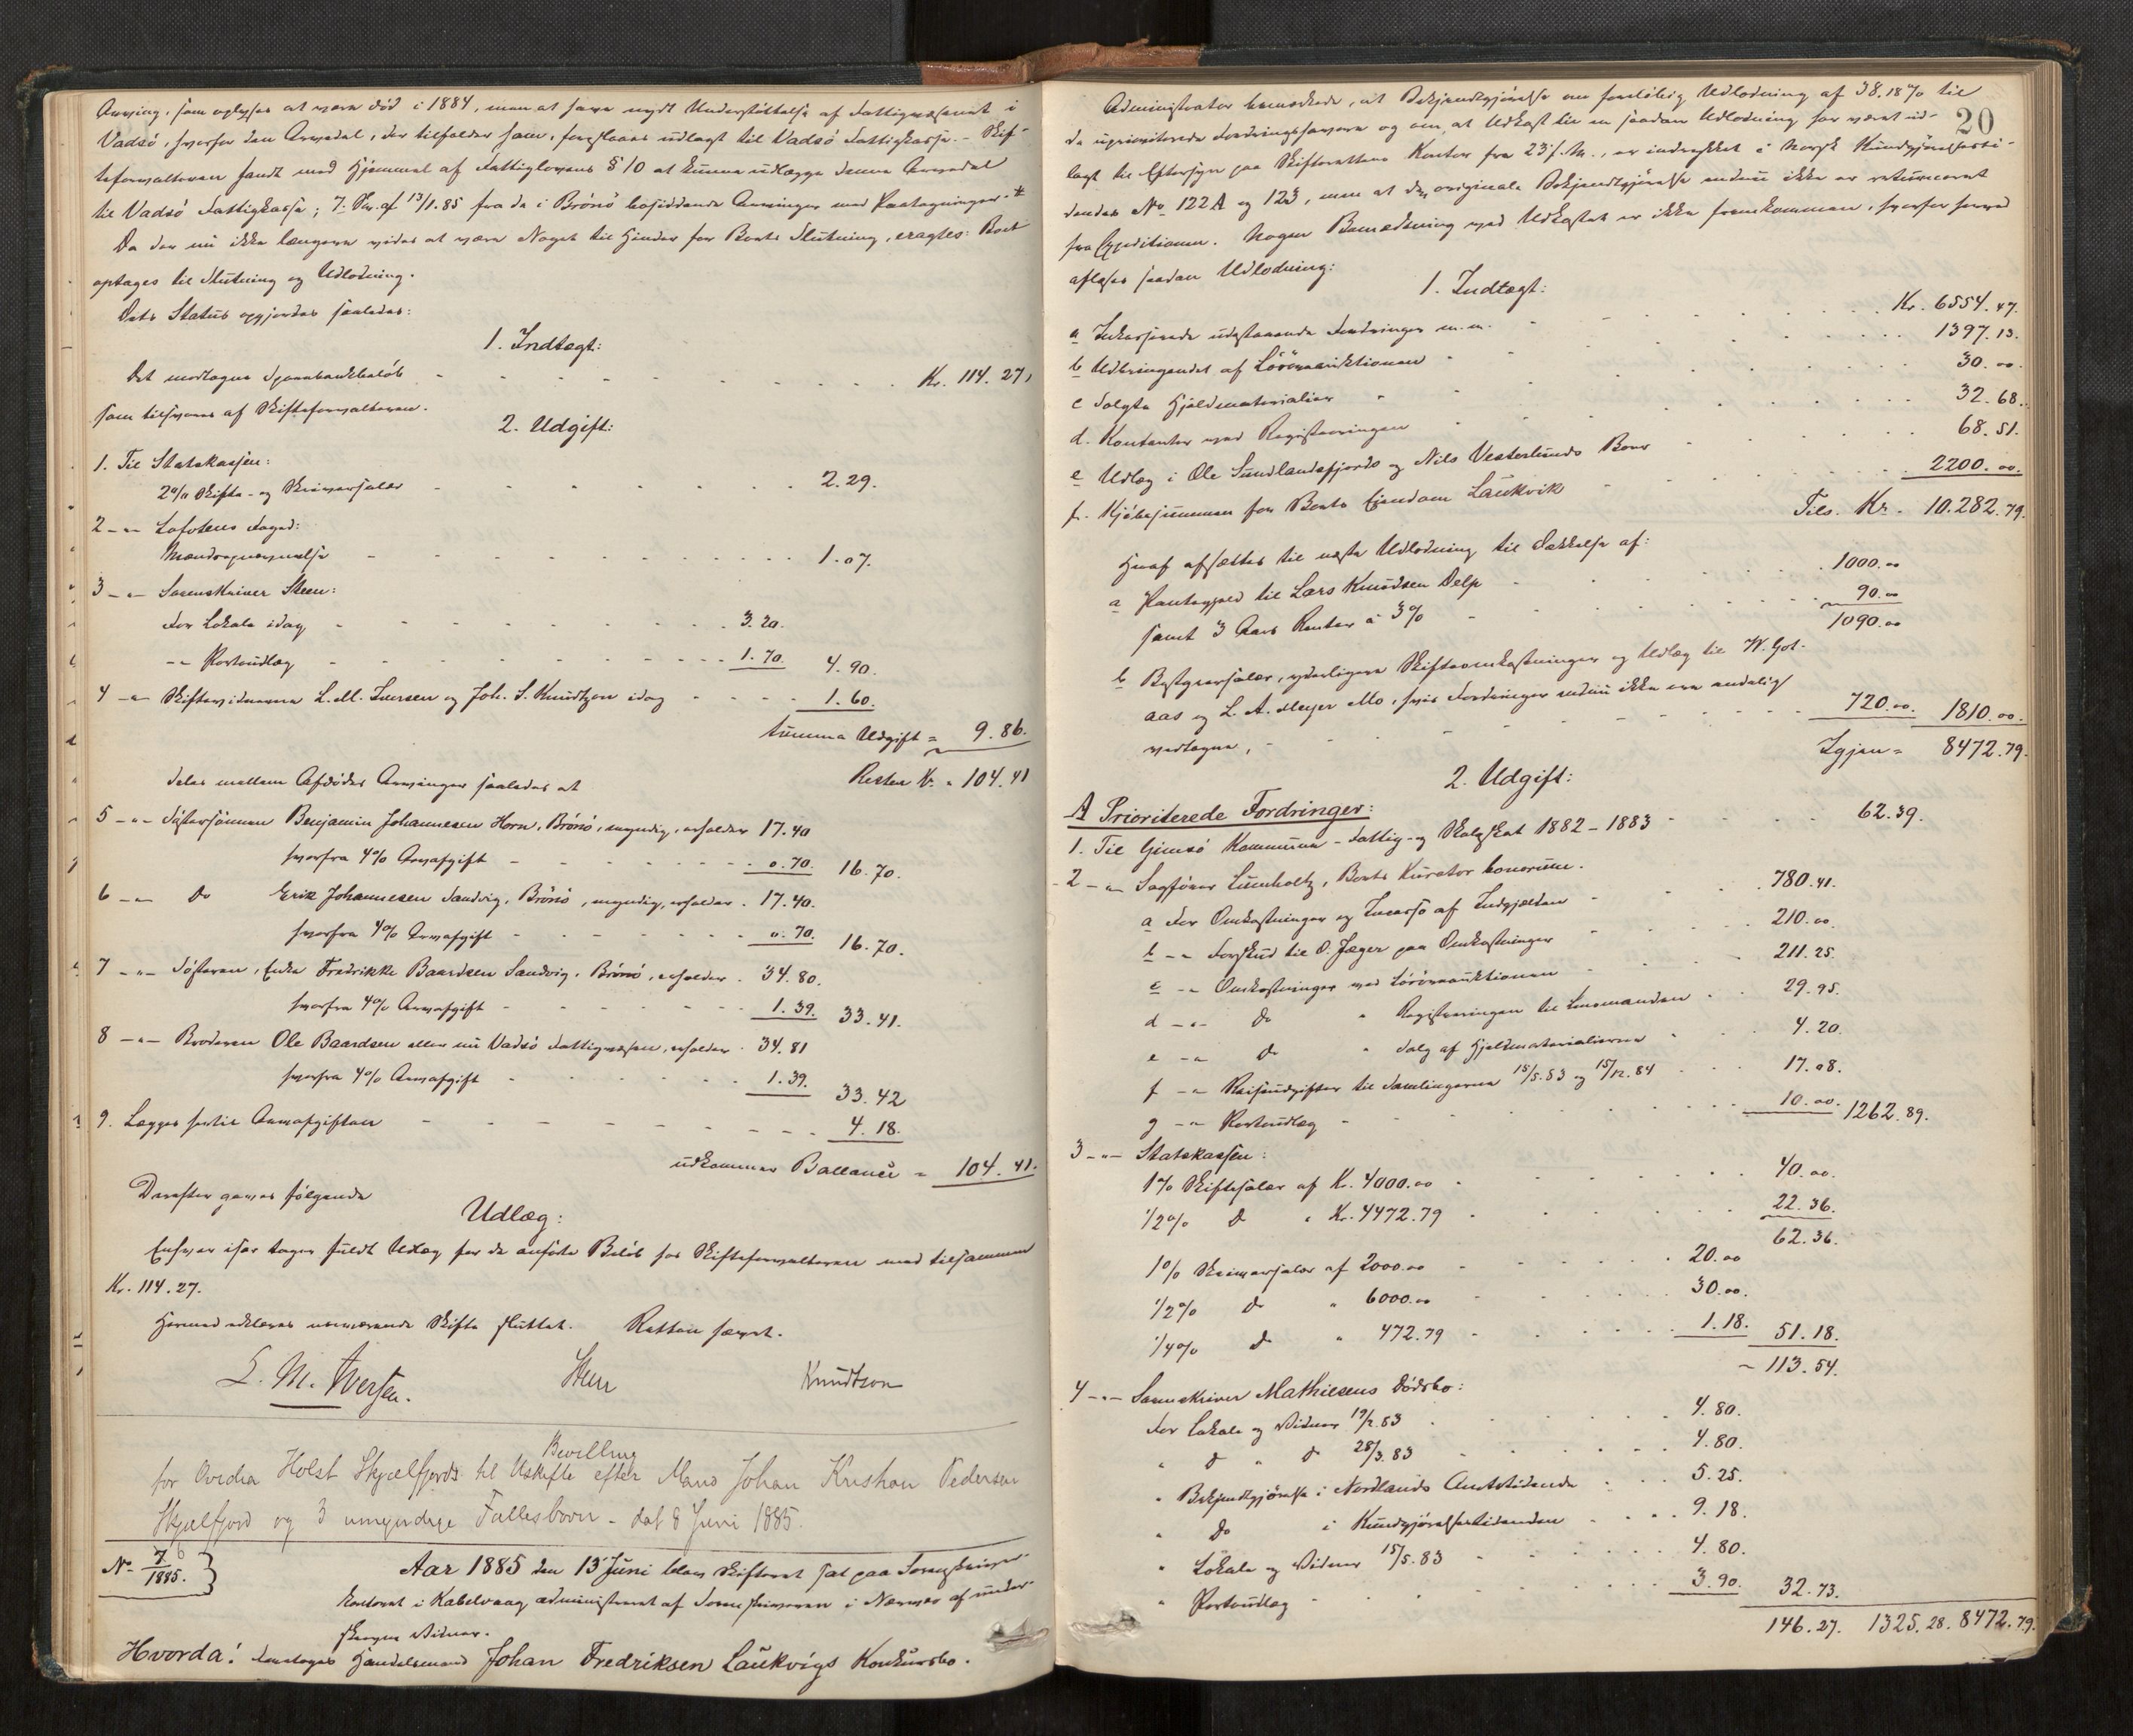 Arving, som oplyses at være død i 1884, men at have nydt Understøttelse af Fattigvæsenet i
Vadsö, hvorfor den Arvedel, der tilfalder ham, foreslaaes udlagt til Vadsö Fattigkasse. – Skif-
teforvalteren fandt med Hjemmel af Fattiglovens § 10 at kunne udlægge denne Arvedel
til Vadsö Fattigkasse; 7. Skr. af 13/1.85 fra de i Brönö bosiddende Arvinger med Paategninger. *
Da der nu ikke længere vides at være Noget til Hinder for Boets Slutning, eragtes: Boet
optages til Slutning og Udlodning.
Dets Status opgjordes saaledes:
1. Indtægt:
Det modtagne Sparebankbeløb - - - - Kr. 114.27,
som tilsvares af Skifteforvalteren.
2. Udgift:
1. Til Statskassen:
2% Skifte- og Skriversalær - - - - 2.29.
2 -"- Lofotens Foged:
Mændsopnævnelse - - - - 1.07.
3 -"- Sorenskriver Steen:
For Lokale idag - - - - 3.20.
-"- Portoudlæg - - - - 1.70. 4.90.
4 -"- Skiftevidnerne L. M. Iversen og Joh. S. Knudtzon idag - - - 1.60.
Summa Udgift = 9.86.
Resten Kr. = 104.41
deles mellem Afdødes Arvinger saaledes at
5 -"- Søstersønnen Benjamin Johannesen Horn, Brönö, myndig, erholder 17.40
hvorfra 4% Arveafgift - - - - 0.70. 16.70.
6 -"- Do Erik Johannesen Sandvig, Brönö, myndig, erholder. 17.40.
hvorfra 4% Arveafgift - - - - 0.70. 16.70.
7 -"- Søsteren, Enke Fredrikke Baardsen Sandvig, Brönö, erholder. 34.80.
hvorfra 4% Arveafgift - - - - 1.39. 33.41.
8 -"- Broderen Ole Baardsen eller nu Vadsö Fattigvæsen, erholder. 34.81
hvorfra 4% Arveafgift - - - - 1.39. 33.42
9. Lægges hertil Arveafgiften - - - - 4.18.
udkommer Ballance = 104.41.
Derefter gaves følgende
Udlæg:
Enhver især tager fuldt Udlæg for de anførte Beløb hos Skifteforvalteren med tilsammen
Kr. 114.27.
Hermed erklæres nærværende Skifte sluttet. Retten hævet.
L. M. Iversen. Steen Knudtzon
Bevilling
for Ovedia Holst Skjælfjord til Uskifte efter Mand Johan Kristian Pedersen
Skjælfjord og 3 umyndige Fællesbørn - dat 8 Juni 1885.
No 7/1885. } 6
Aar 1885 den 13 Juni blev Skifteret sat paa Sorenskriver-
kontoret i Kabelvaag administreret af Sorenskriveren i Nærvær af under-
skrevne Vidner.
Hvorda: foretoges Handelsmand Johan Fredriksen Laukvigs Konkursbo.
20
Administrator bemærkede, at Bekjendtgjørelse om foreløbig Udlodning af 38.18% til
de uprioriterede Fordringshavere og om, at Udkast til en saadan Udlodning har været ud-
lagt til Eftersyn paa Skifterettens Kontor fra 23 f. M., er indrykket i Norsk Kundgjørelsesti-
dendes No. 122 A og 123, men at den originale Bekjendtgjørelse endnu ikke er returneret
fra Expeditionen. Nogen Bemærkning ved Udkastet er ikke fremkommen, hvorfor herved
aflæses saadan Udlodning:
1. Indtægt:
a Inkasserede udestaaende Fordringer m. m. - - - - Kr. 6554.47.
b Udbringendet af Løsøreauktionen - - - - 1397.13.
c Solgte Hjeldmaterialier - - - - 30.00.
d. Kontanter ved Registreringen - - - - 32.68.
e Udlæg i Ole Sundlandsfjords og Nils Vesterlunds Boer - - - - 68.51.
f. Kjøbesummen for Boets Eiendom Laukvik - - - - 2200.00.
Tils. Kr. 10.282.79.
Heraf afsættes til næste Udlodning til Dækkelse af:
a Pantegjæld til Lars Knudsen Delp - - - - 1000.00
samt 3 Aars Renter á 3% - - - - 90.00
1090.00
b Bestyrersalær, yderligere Skifteomkostninger og Udlæg til W. Got-
aas og L. A. Meyer Mo, hvis Fordringer endnu ikke ere endelig
vedtagne, - - - - 720.00. 1810.00.
Igjen = 8472.79.
2. Udgift:
A Prioriterede Fordringer:
1. Til Gimsö Kommune - Fattig- og Skoleskat 1882 - 1883 - - - - 62.39.
2 -"- Sagfører Lumholtz, Boets Kurator bonorum.
a For Omkostninger og Incasso af Indgjælden - - - 780.41.
b -"- Forskud til O. Jæger paa Omkostninger - - - 210.00.
c -"- Omkostninger ved Løsøreauktionen - - - 211.25.
d -"- Do " Registreringen til Lensmanden - - 29.95.
e -"- Do " Salg af Hjeldmaterialierne - - 4.20.
f -"- Reiseudgifter til Samlingerne 15/5.83 og 15/12.84 - - - 17.08.
g -"- Portoudlæg - - - - 10.00. 1262.89.
3 -"- Statskassen:
1% Skiftesalær af Kr. 4000.00 - - - - 40.00.
1/2% Do " Kr. 4472.79 - - - - 22.36.
62.36.
1% Skriversalær af 2000.00 - - - - 20.00
1/2% Do " 6000.00 - - - - 30.00.
1/4% Do " 472.79 - - - - 1.18. 51.18.
- 113.54.
4 -"- Sorenskriver Mathiesens Dödsbo:
For Lokale og Vidner 19/2.83 - - - - 4.80.
" Do " Do 28/3.83 - - - - 4.80.
" Bekjendtgjørelse i Nordlands Amtstidende - - - 5.25.
" Do i Kundgjørelsestidenden - - - 9.18.
" Lokale og Vidner 15/5.83 - - - - 4.80.
" Portoudlæg - - - - 3.90. 32.73.
146.27. 1325.28. 8472.79.